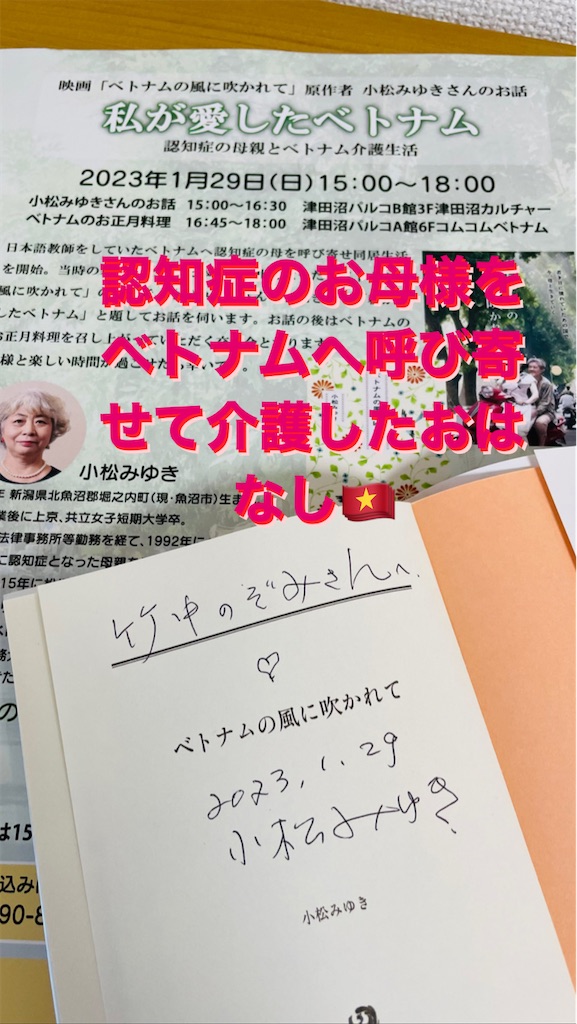 映画「ベトナムの風に吹かれて」原作者 小松みゆきさんのお話
私が愛したベトナム
認知症の母親とベトナム介護生活
2023年1月29日(日)15:00〜18:00
小松みゆきさんのお話 15:00〜16:30 津田沼パルコB館3F津田沼カルチャー
ベトナムのお正月料理 16:45〜18:00 津田沼パルコA館6Fコムコムベトナム
日本語教師をしていたベトナムへ認知症の母を呼び寄せ同居生活
を開始。当時の
風に吹かれて」の
したベトナム」と題してお話を伺います。お話の後はベトナムの
お正月料理を召し上が
様と楽しい時間が過ごせ
認知症のお母様を
ベトナムへ呼び寄
せて介護したおは
なし🇻🇳
小松みゆき
年 新潟県北魚沼郡堀之内町(現・魚沼市)生ま
業後に上京、共立女子短期大学卒。
法律事務所等勤務を経て、1992年に
に認知症となった母親を
15年に
は15
込み
90-8
竹中のぞみさんへ.
♡
ベトナムの風に吹かれて
2023.1.29
小松みゆき
小松みゆき